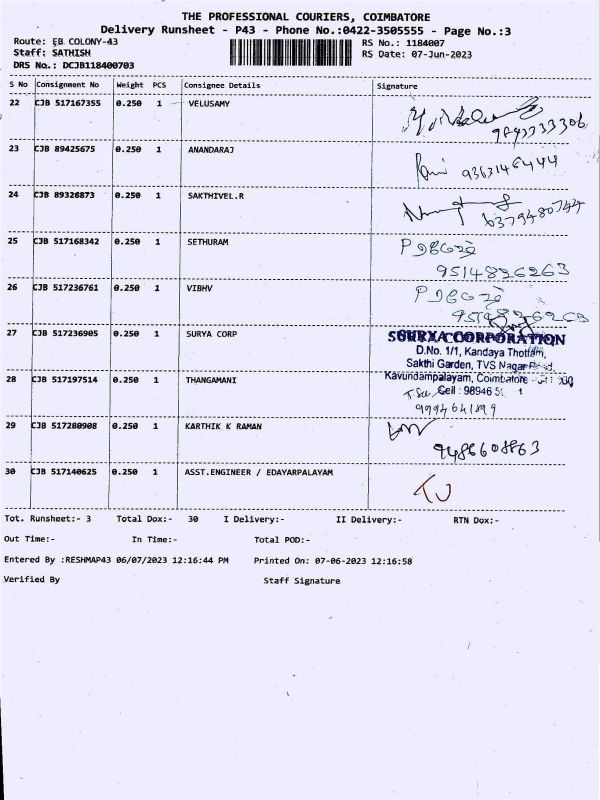 THE PROFESSIONAL COURIERS, COIMBATORE
Delivery Runsheet - P43 - Phone No.:0422-3505555 - Page No.:3
Route: EB COLONY-43 RS No.: 1184007
Staff: SATHISH RS Date: 07-Jun-2023
DRS No.: DCJB118400703
S No Consignment No Weight PCS Consignee Details Signature
22 CJB 517167355 0.250 1 VELUSAMY
9843333306
23 CJB 89425675 0.250 1 ANANDARAJ
9363146444
24 CJB 89326873 0.250 1 SAKTHIVEL.R
6379480744
25 CJB 517168342 0.250 1 SETHURAM
9514826263
26 CJB 517236761 0.250 1 VIBHV
9514826263
27 CJB 517236905 0.250 1 SURYA CORP SURYA CORPORATION
D.No. 1/1, Kandaya Thottam,
Sakthi Garden, TVS Nagar Road,
Kavundampalayam, Coimbatore
28 CJB 517197514 0.250 1 THANGAMANI Cell : 98946
9994641899
29 CJB 517280908 0.250 1 KARTHIK K RAMAN
9486608863
30 CJB 517140625 0.250 1 ASST.ENGINEER / EDAYARPALAYAM
Tot. Runsheet:- 3 Total Dox:- 30 I Delivery:- II Delivery:- RTN Dox:-
Out Time:- In Time:- Total POD:-
Entered By :RESHMAP43 06/07/2023 12:16:44 PM Printed On: 07-06-2023 12:16:58
Verified By Staff Signature